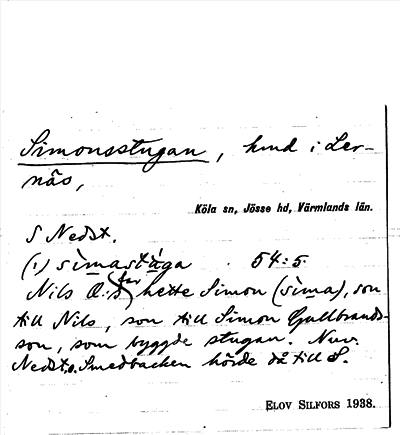 Simonsstugan, hmd i Ler-
näs,
Köla sn, Jösse hd, Värmlands län.
S Nedst.
(1) sìmastùga . 54:5
Nils O:s far hette Simon (sìma), son
till Nils, son till Simon Gullbrands-
son, som byggde stugan. Nuv.
Nedst. o. Smedbacken hörde då till S.
ELOV SILFORS 1938.